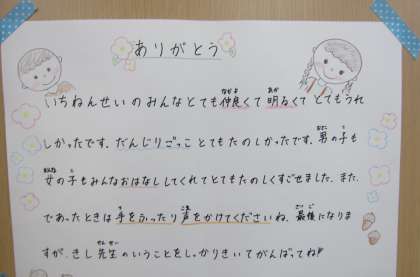 ありがとう
いちねんせいのみんなとても仲良くて明るくてとてもうれ
しかったです。だんじりごっことてもたのしかったです。男の子も
女の子もみんなおはなししてくれてとてもたのしくすごせました。また、
であったときは手をふったり声をかけてくださいね。最後になりま
すが、きし先生のいうことをしっかりきいてがんばってね!!